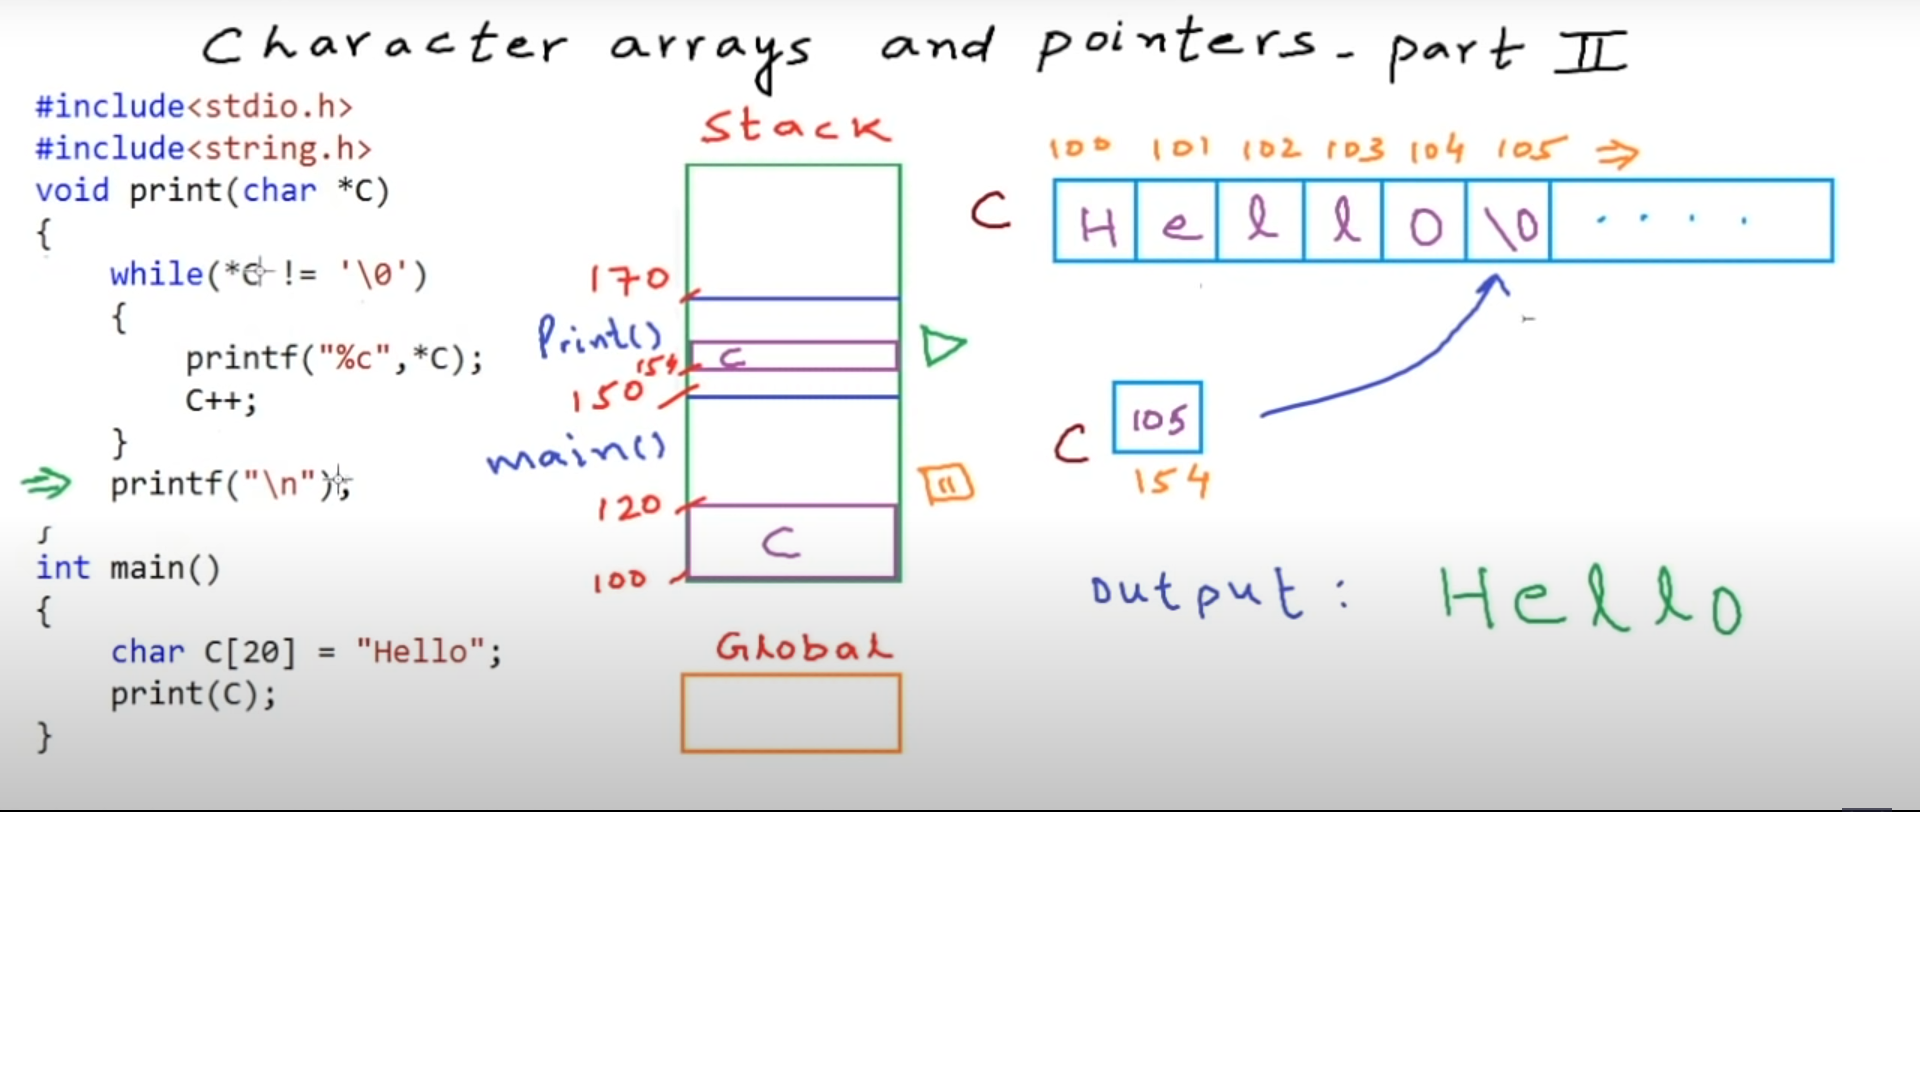 Character arrays and pointers - part II
#include<stdio.h>
#include<string.h>
void print(char *C)
{
while(*C != '\0')
{
printf("%c",*C);
C++;
}
printf("\n");
}
int main()
{
char C[20] = "Hello";
print(C);
}
Stack
170
Print()
154
C
150
main()
120
C
100
Global
100 101 102 103 104 105 ⇒
C H e l l o \0 ....
C 105
154
output: Hello